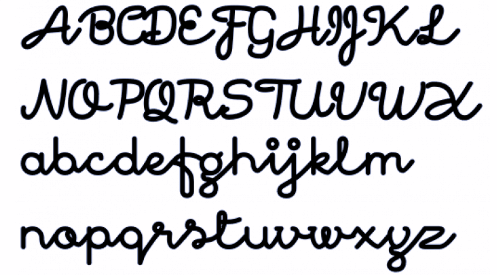 ABCDEFGHIJKL
NOPQRSTUVWX
abcdefghijklm
nopqrstuvwxyz